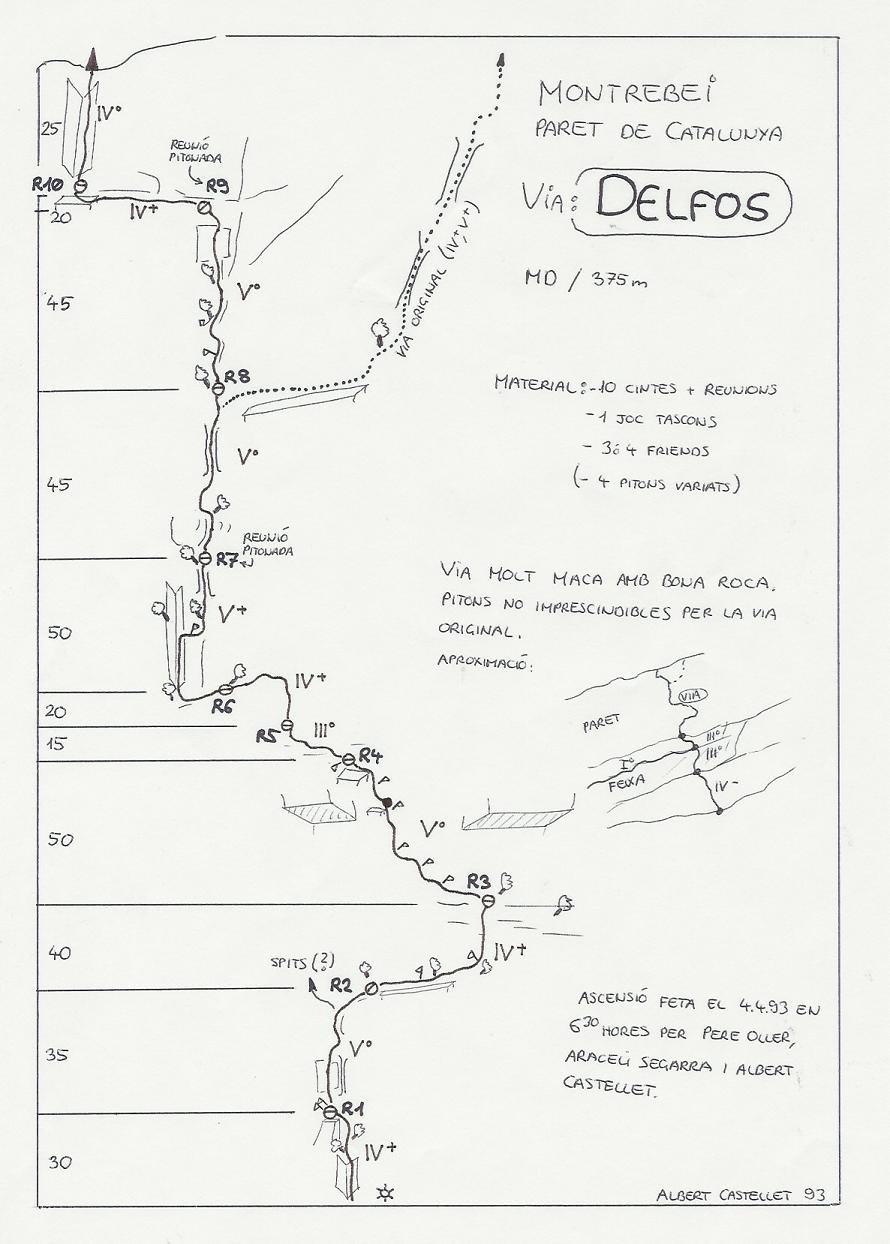 MONTREBEI
PARET DE CATALUNYA
VIA: DELFOS
MD / 375m
MATERIAL: -10 CINTES + REUNIONS
-1 JOC TASCONS
- 3ó4 FRIENDS
(- 4 PITONS VARIATS)
VIA MOLT MACA AMB BONA ROCA.
PITONS NO IMPRESCINDIBLES PER LA VIA
ORIGINAL.
APROXIMACIÓ:
PARET
VIA
IIIº
IIIº
Iº
FEIXA
IV-
ASCENSIÓ FETA EL 4.4.93 EN
6³⁰ HORES PER PERE OLLER,
ARACELI SEGARRA I ALBERT
CASTELLET.
ALBERT CASTELLET 93
25
IVº
REUNIÓ
PITONADA
R10
R9
20
IV+
45
Vº
VIA ORIGINAL (IV+,V+)
R8
45
Vº
REUNIÓ
PITONADA
R7
50
V+
R6
20
IV+
R5
15
IIIº
R4
50
Vº
R3
40
IV+
SPITS (?)
R2
35
Vº
R1
30
IV+